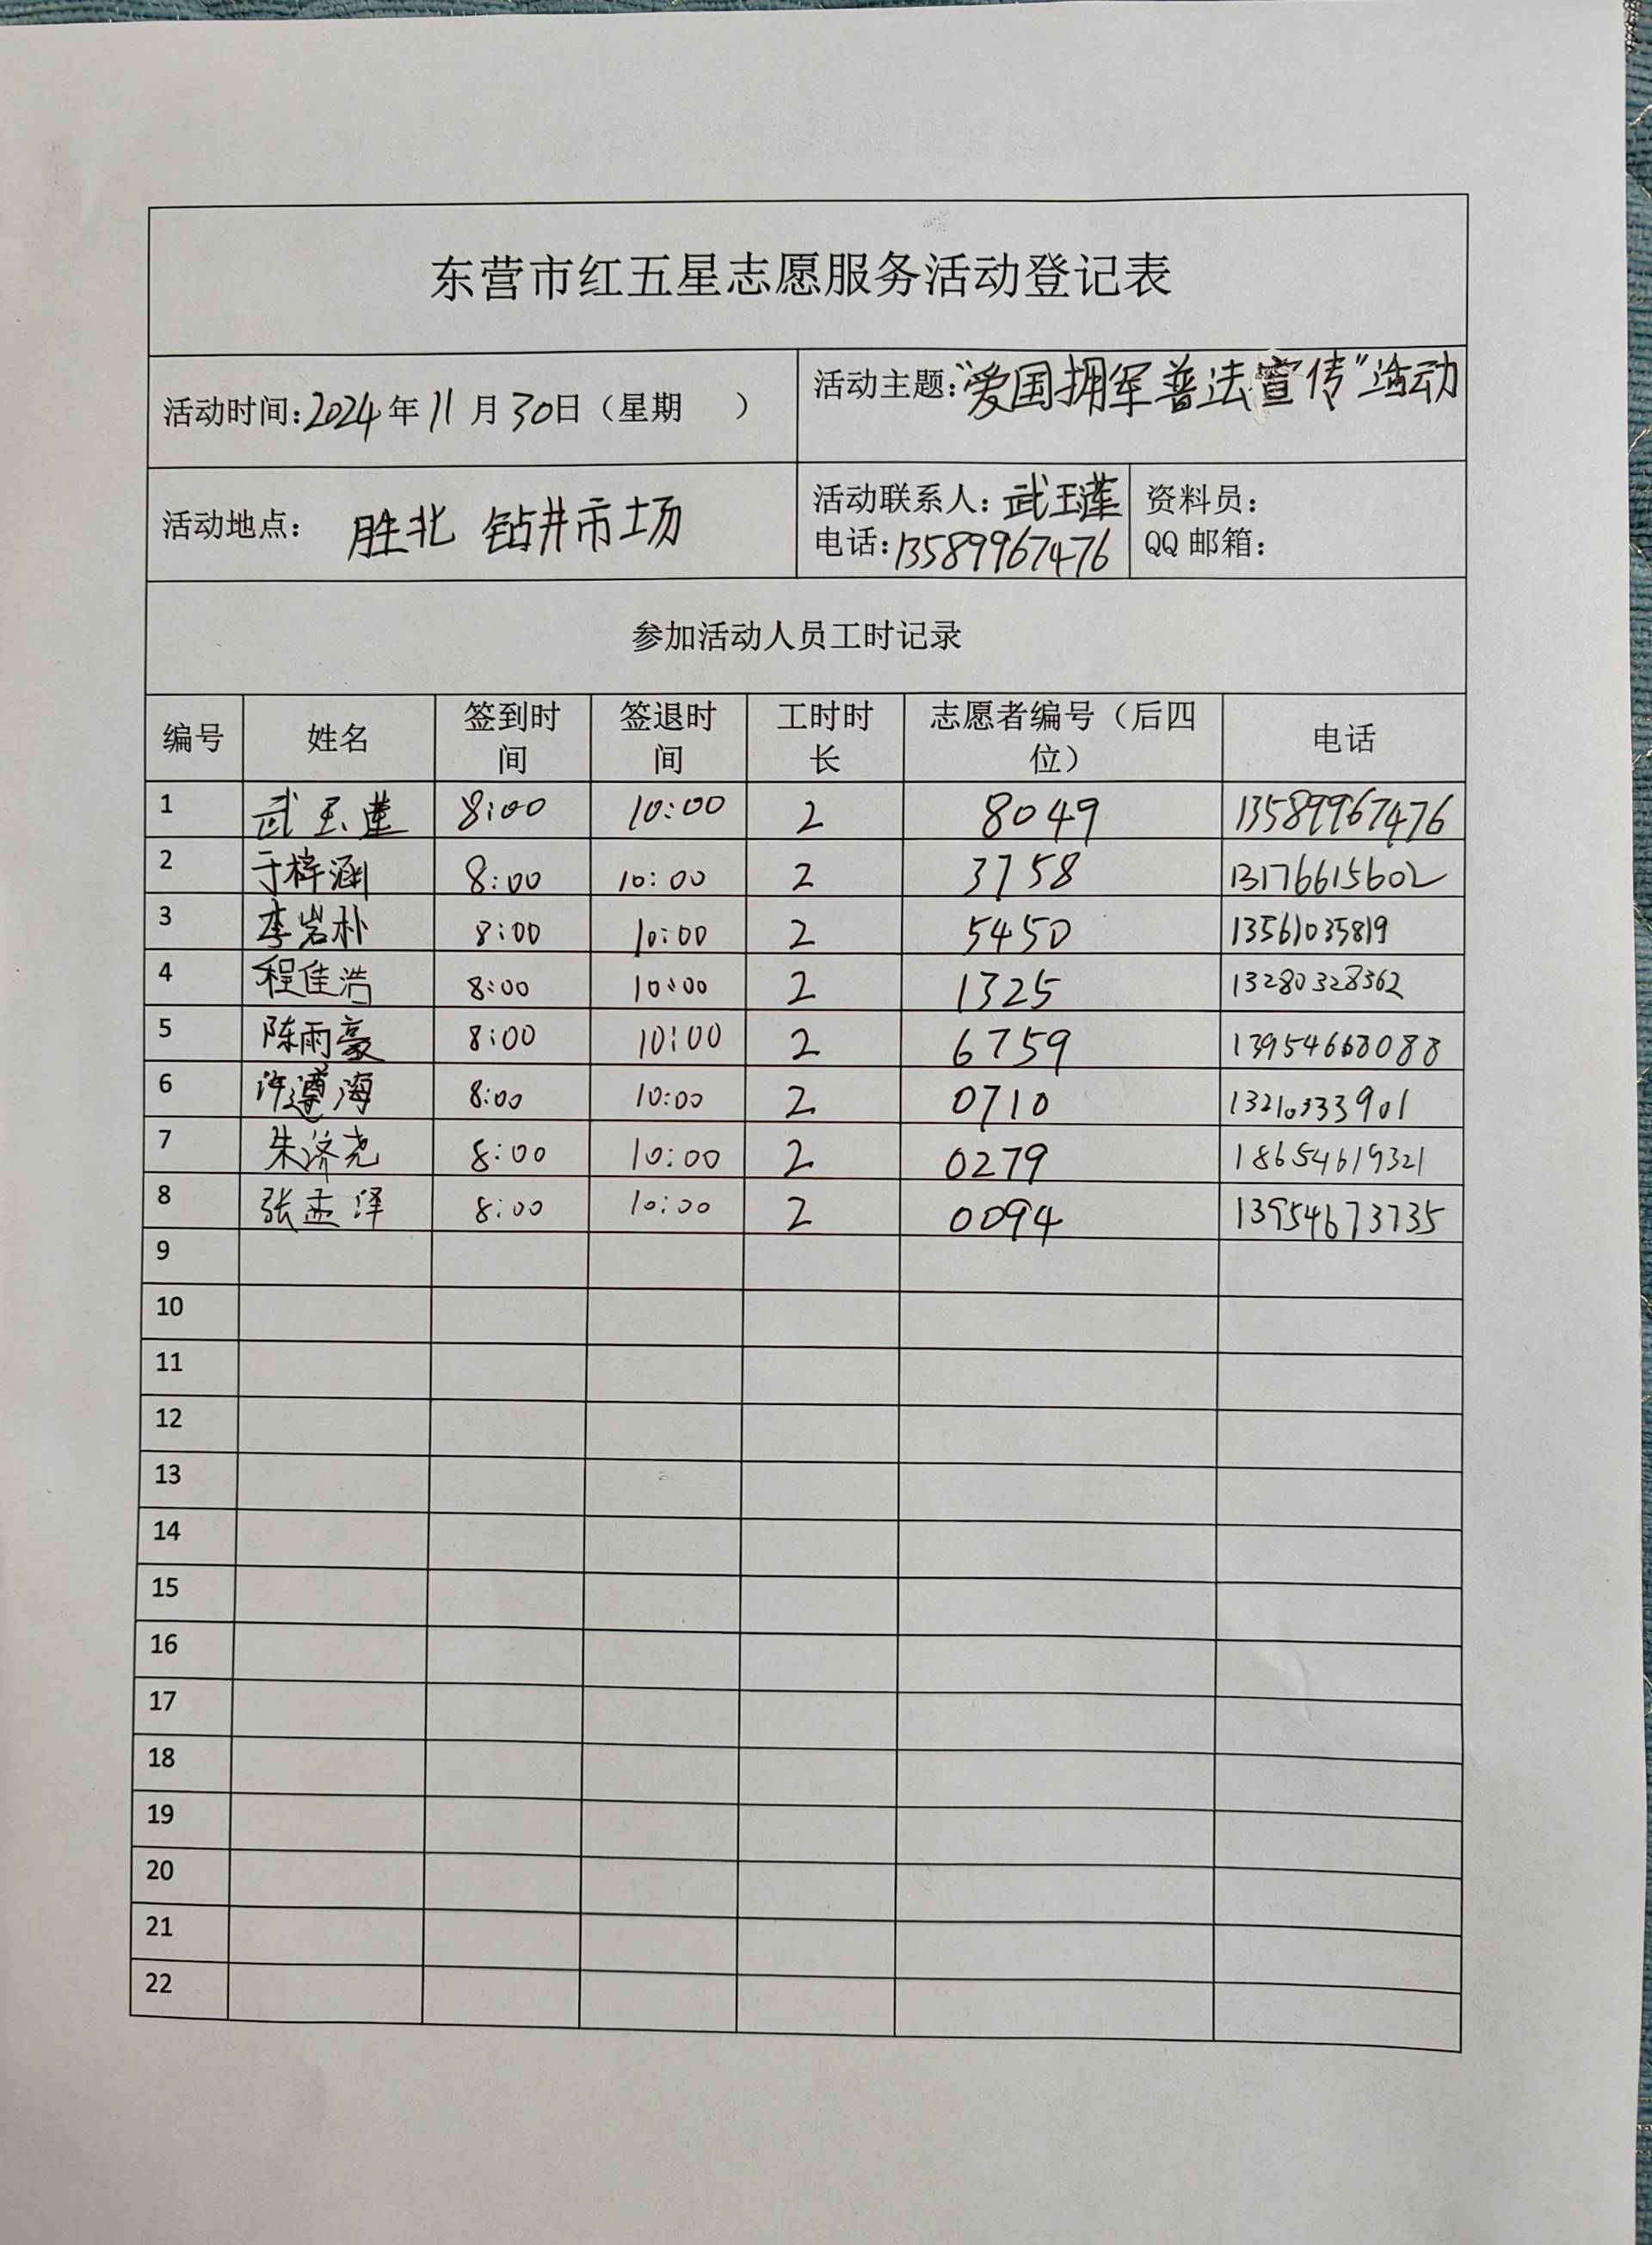 东营市红五星志愿服务活动登记表
活动时间:2024年11月30日（星期　　）
活动主题:“爱国拥军普法宣传”活动
活动地点: 胜北 钻井市场
活动联系人: 武玉莲
电话:13589967476
资料员:
QQ 邮箱:
参加活动人员工时记录
编号 姓名 签到时间 签退时间 工时时长 志愿者编号（后四位） 电话
1 武玉莲 8:00 10:00 2 8049 13589967476
2 于梓涵 8:00 10:00 2 3758 13176615602
3 李岩朴 8:00 10:00 2 5450 13561035819
4 程佳浩 8:00 10:00 2 1325 13280328362
5 陈雨豪 8:00 10:00 2 6759 13954668088
6 许遵海 8:00 10:00 2 0710 13210333901
7 朱济尧 8:00 10:00 2 0279 18654619321
8 张孟泽 8:00 10:00 2 0094 13954673735
9
10
11
12
13
14
15
16
17
18
19
20
21
22